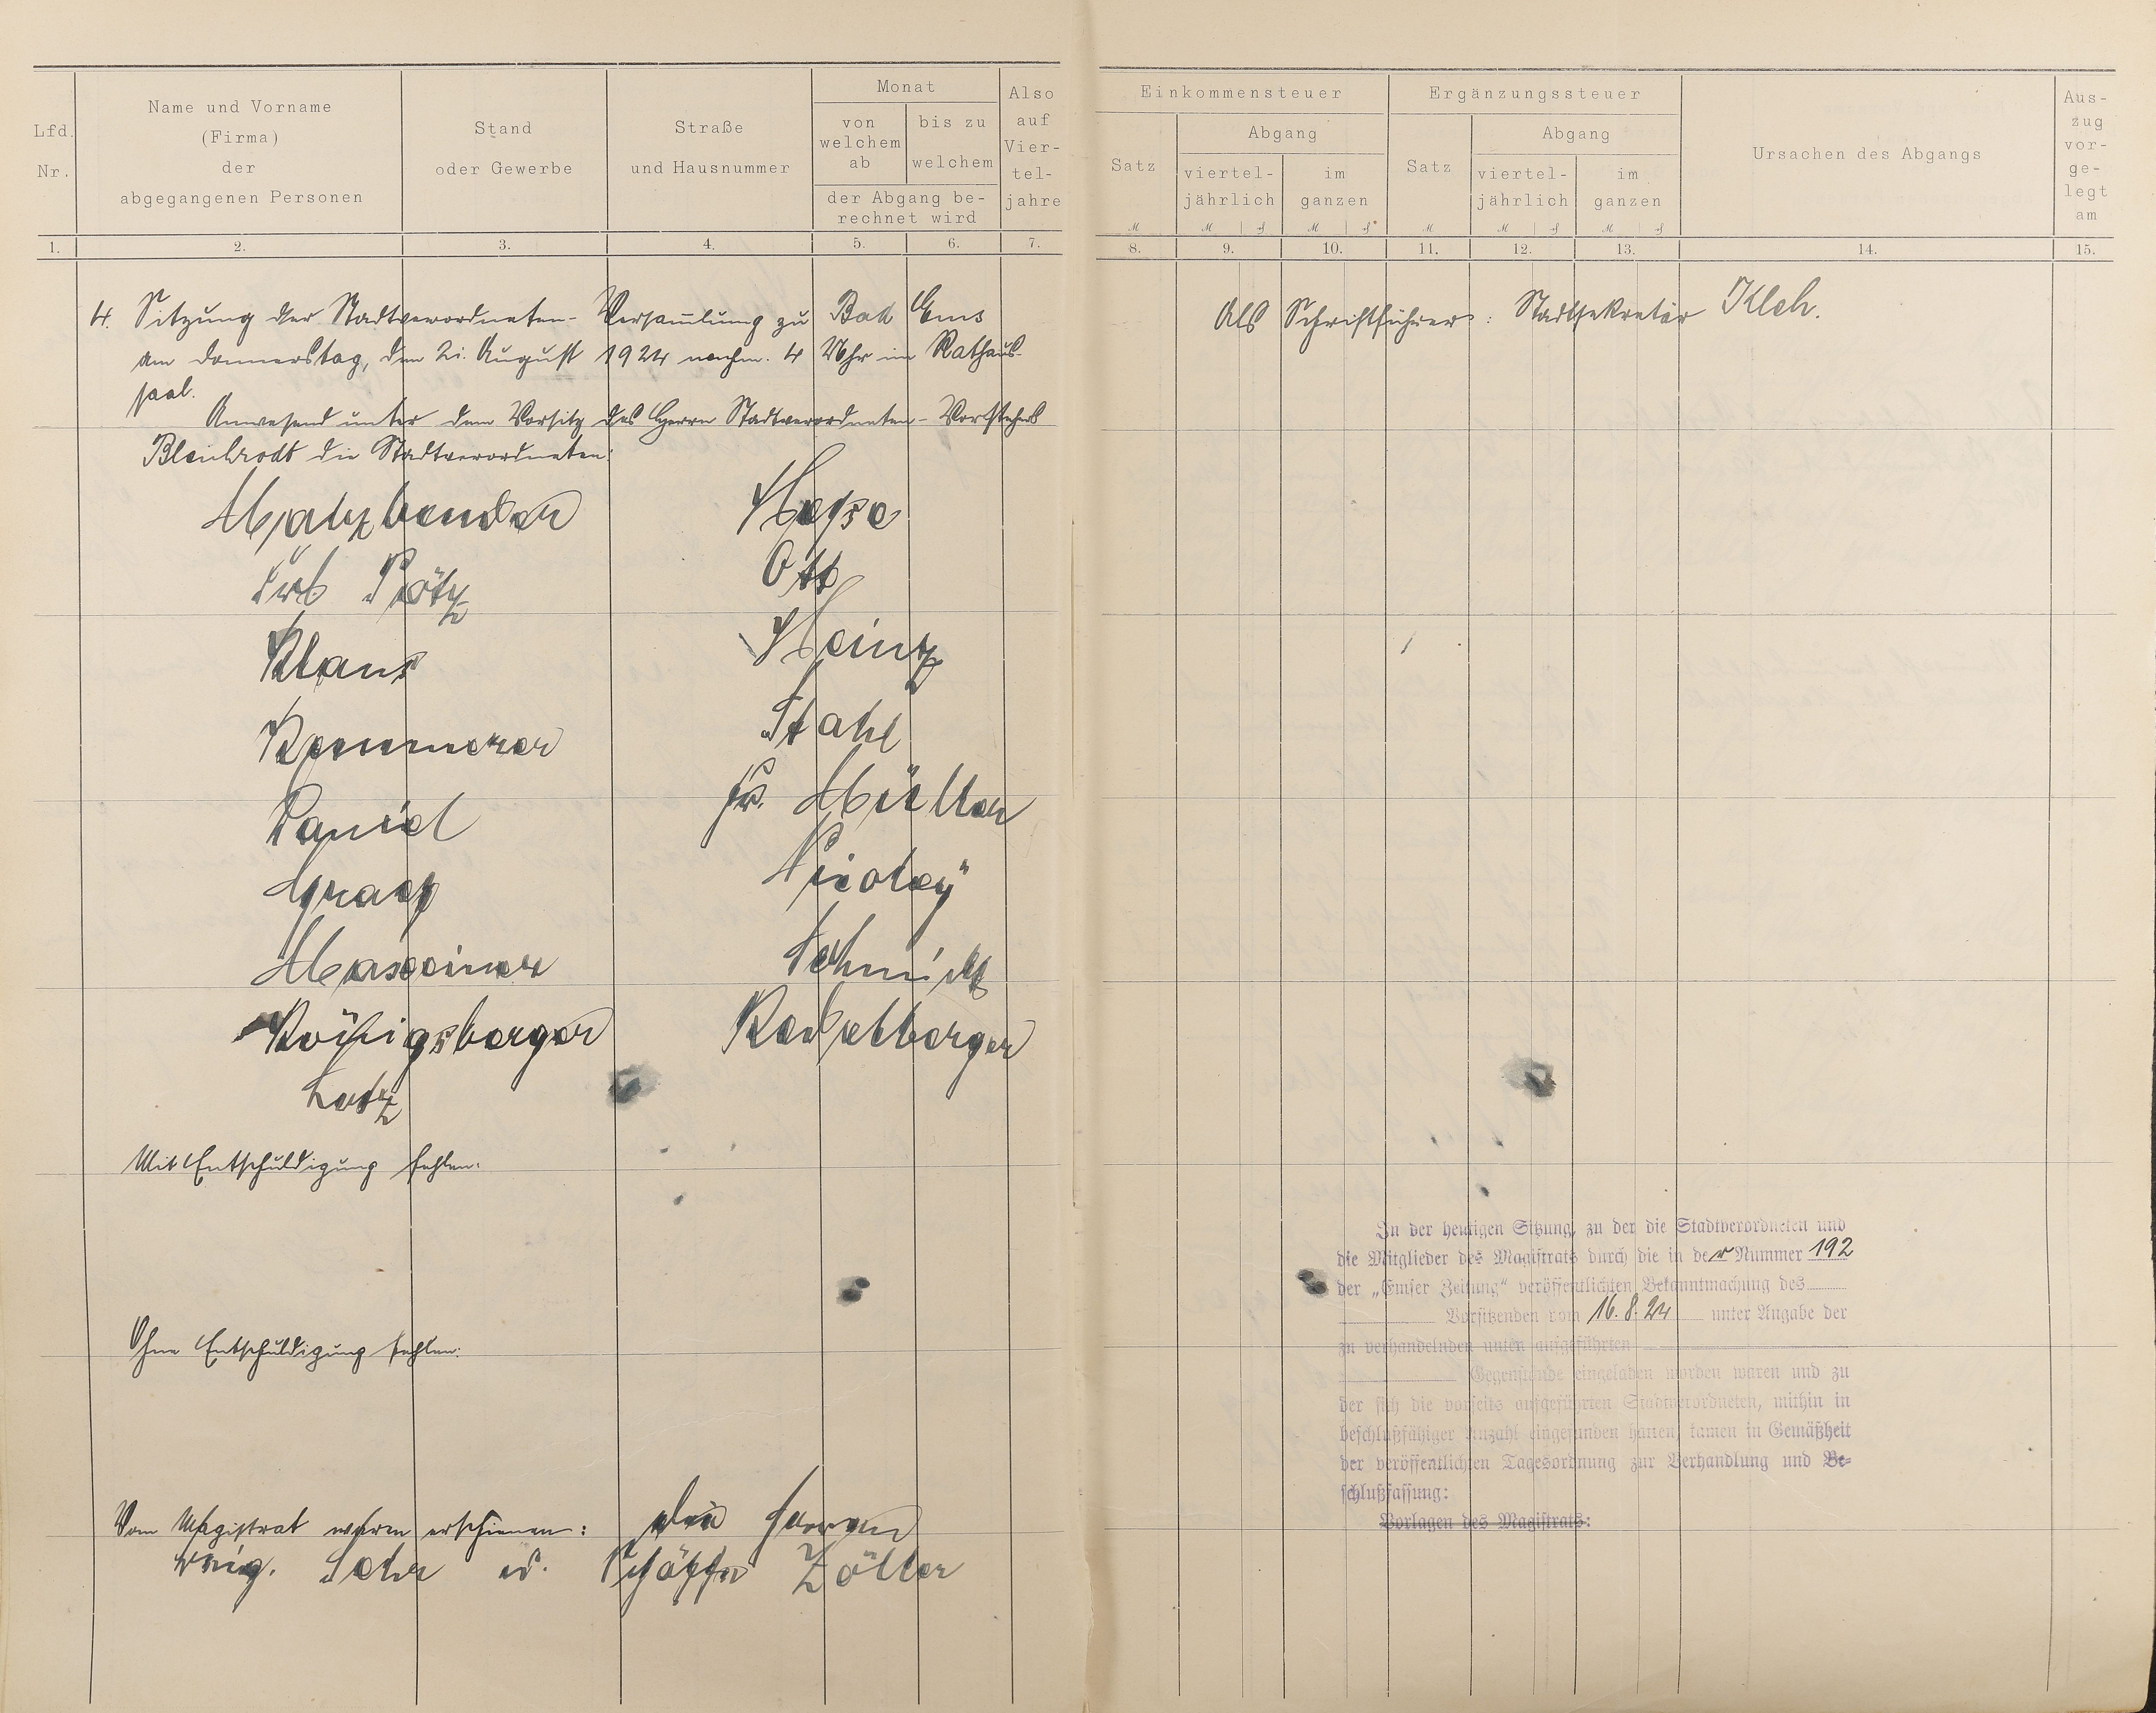 Lfd. Nr.
Name und Vorname
(Firma)
der
abgegangenen Personen
Stand
oder Gewerbe
Straße
und Hausnummer
Monat
von welchem ab
bis zu welchem
der Abgang be-
rechnet wird
Also auf Vier-
tel-
jahre
Einkommensteuer
Satz
Abgang
viertel-
jährlich
im
ganzen
Ergänzungssteuer
Satz
Abgang
viertel-
jährlich
im
ganzen
Ursachen des Abgangs
Aus-
zug
vor-
ge-
legt
am
1. 2. 3. 4. 5. 6. 7. 8. 9. 10. 11. 12. 13. 14. 15.
4. Sitzung der Stadtverordneten-Versammlung zu Bad Ems
am Donnerstag, den 21. August 1924 nachm. 4 Uhr im Rathaus-
saal.
Anwesend unter dem Vorsitz des Herrn Stadtverordneten-Vorstehers
die Stadtverordneten:
Heyse
Ott
Klaus
Heintz
Kemmerer
Stahl
Daniel
Fr. Müller
Nicolay
Masseiner
Schmidt
Königsberger
Lotz
Mit Entschuldigung fehlen:
Ohne Entschuldigung fehlen:
Vom Magistrat waren erschienen: die Herren
u. Schöffe Zöller
Als Schriftführer: Stadtsekretär
In der heutigen Sitzung, zu der die Stadtverordneten und
die Mitglieder des Magistrats durch die in der Nummer 192
der „Emser Zeitung" veröffentlichten Bekanntmachung des
Vorsitzenden vom 16.8.24 unter Angabe der
zu verhandelnden unten aufgeführten
Gegenstände eingeladen worden waren und zu
der sich die vorseits aufgeführten Stadtverordneten, mithin in
beschlußfähiger Anzahl eingefunden hatten, kamen in Gemäßheit
der veröffentlichten Tagesordnung zur Verhandlung und Be-
schlußfassung:
Vorlagen des Magistrats: